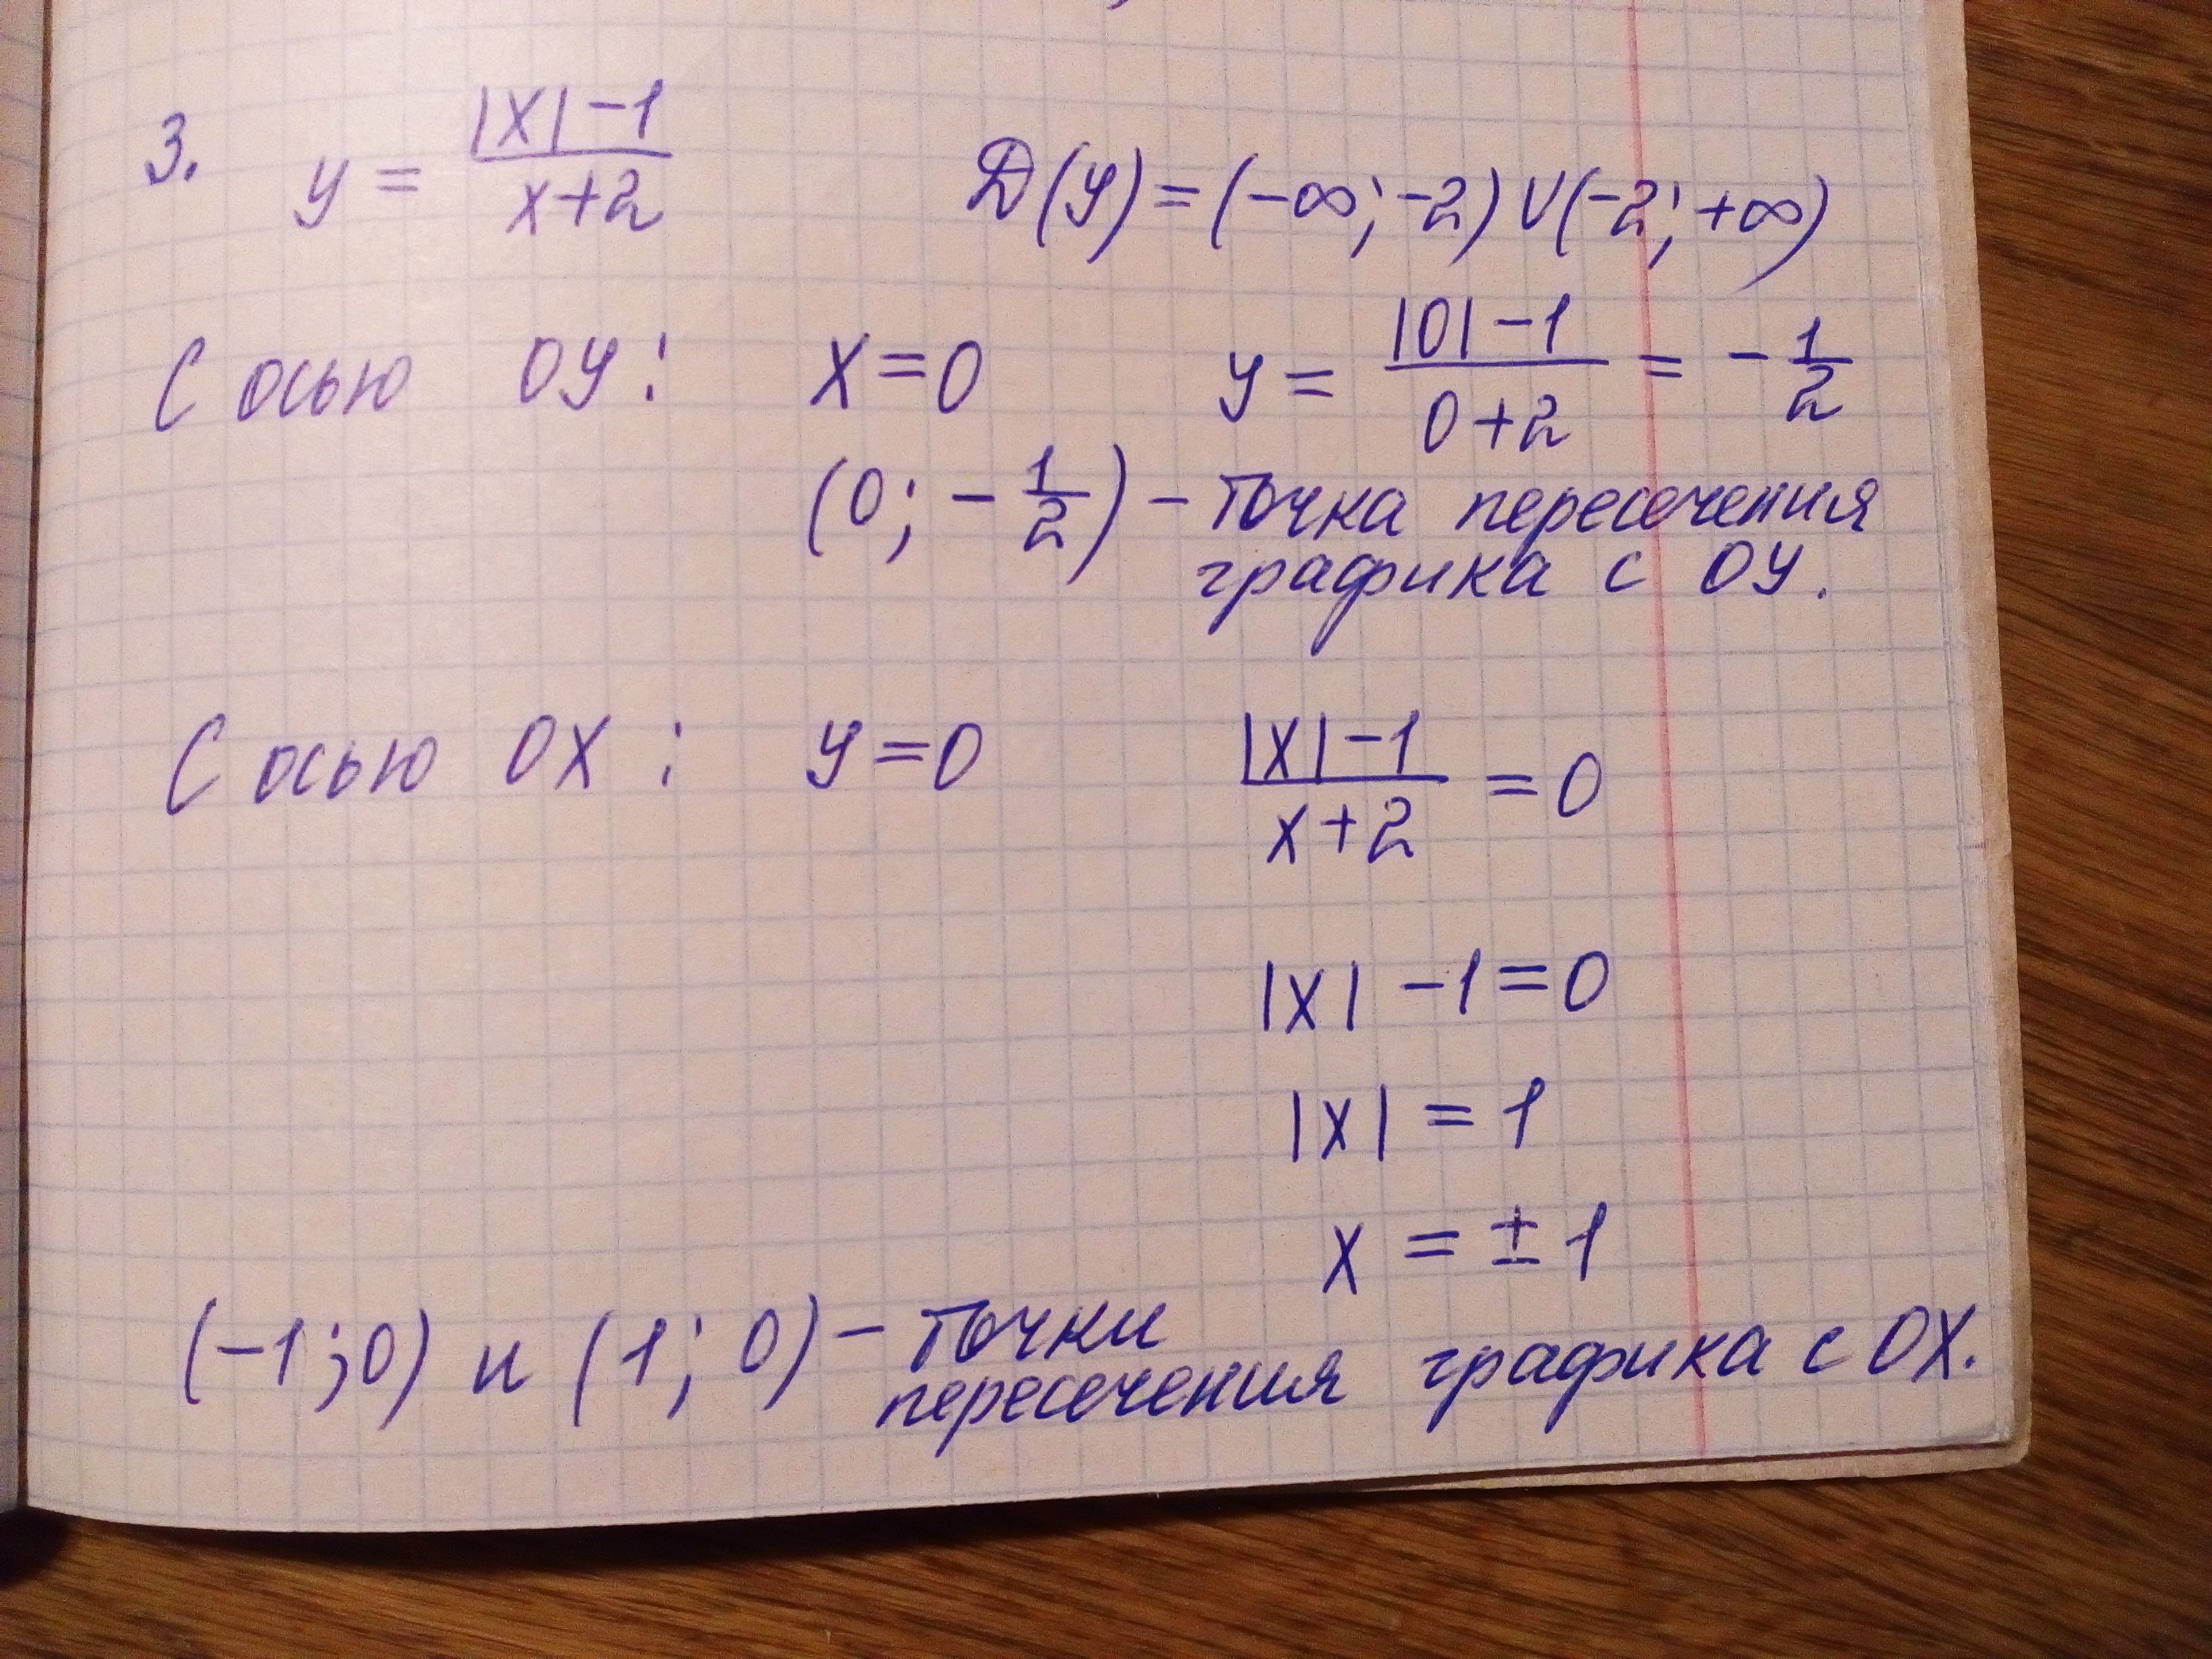 3. y = (|x| - 1)/(x+2) D(y) = (-∞; -2) ∪ (-2; +∞)
С осью OY: x = 0 y = (|0| - 1)/(0+2) = - 1/2
(0; - 1/2) - точка пересечения
графика с OY.
С осью OX: y = 0 (|x| - 1)/(x+2) = 0
|x| - 1 = 0
|x| = 1
x = ± 1
(-1; 0) и (1; 0) - точки
пересечения графика с OX.